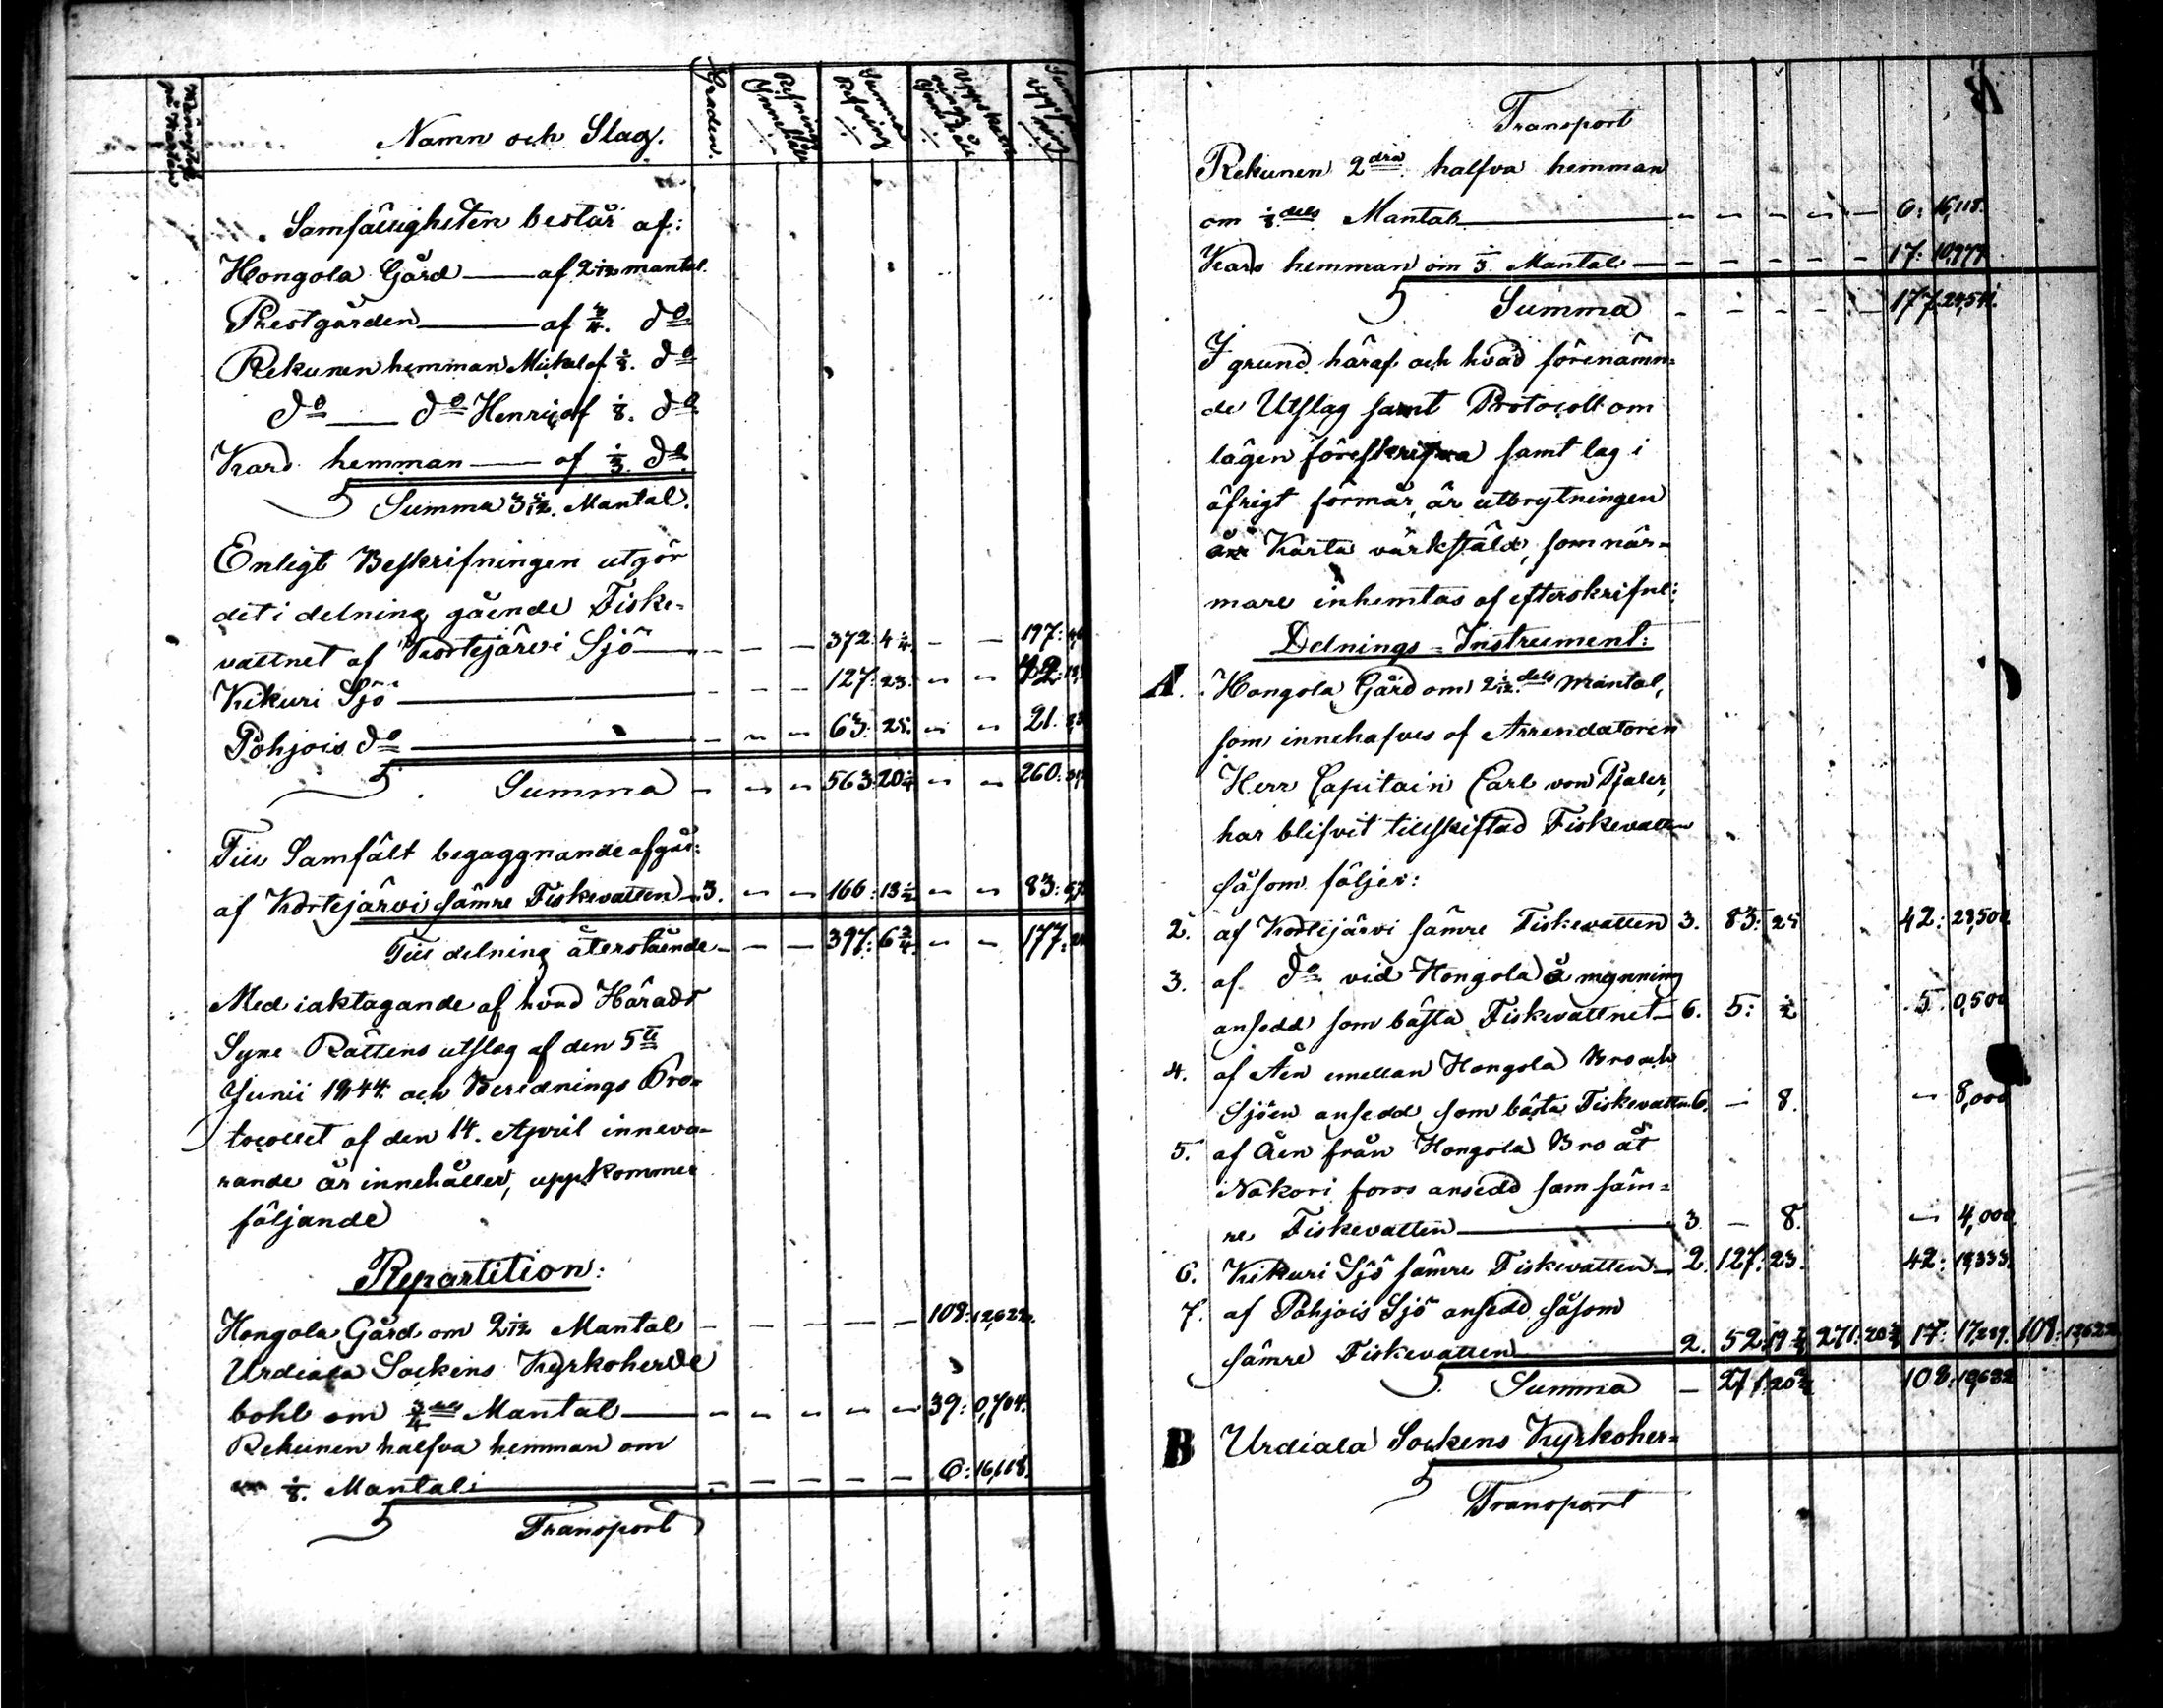 Namn och Slag.
Graden.
Refnings Innehåll
Summa Refning
Samfälligheten består af:
Hongola Gård — af 2 1/12 mantal.
Prestgården — af 3/4. do
Rekunen hemman Mickel af 1/8. do
do — do Henric af 1/8. do
Kars hemman — af 1/3. do
Summa 3 5/12. Mantal.
Enligt Beskrifningen utgör
det i delning gående Fiske-
vattnet af Kortejärvi Sjö — — — 372: 4 1/4. — — 197:
Kikuri Sjö — — — 127: 23. — — 42:
Pohjois do — — — 63: 25. — — 21.
Summa — — — 563: 20 1/4 — — 260:
Till Samfält begaggnande afgår:
af Kortejärvi sämre Fiskevatten — 3. — — 166: 13 1/2 — — 83:
Till delning återstående — — — 397: 6 3/4. — — 177:
Med iaktagande af hvad Härads
Syne Rättens utslag af den 5te
Junii 1844 och Berednings Pro-
tocollet af den 14. April inneva-
rande år innehåller, uppkommer
följande
Repartition:
Hongola Gård om 2 1/12 Mantal — — — — — 108: 12,622.
Urdiala Sockens Kyrkoherde
bohl om 3/4 dels Mantal — — — — — 39: 0,704.
Rekunen halfva hemman om
1/8. Mantal — — — — — 6: 16,118.
Transport
Transport
Rekunen 2dra halfva hemman
om 1/8 dels Mantal — — — — — 6: 16,118.
Kars hemman om 1/3. Mantal — — — — — 17: 10,979
Summa — — — — — 177. 24,541.
I grund häraf och hvad förenämn-
de Utslag samt Protocoll om
lägen föreskrifva samt lag i
öfrigt förmår, är utbrytningen
å Karta värkstäld, som när-
mare inhemtas af efterskrifne:
Delnings-Instrument:
A. Hongola Gård om 2 1/12 dels Mantal,
som innehafves af Arrendatoren
Herr Capitain Carl von Pfaler,
har blifvit tillskiftad Fiskevatten
såsom följer:
2. af Kortejärvi sämre Fiskevatten 3. 83: 25 42: 23,500.
3. af do vid Hongola å mynning
ansedd som bästa Fiskevattnet — 6. 5: 1/2 5. 0,500
4. af Åen emellan Hongola Bro och
Sjöen ansedd som bästa Fiskevatten 6. — 8. — 8,000
5. af Åen från Hongola Bro åt
Nakori fors ansedd som säm-
re Fiskevatten — 3 — 8. — 4,000.
6. Kikuri Sjö sämre Fiskevatten — 2. 127: 23. 42: 18,333.
7. af Pohjois Sjö ansedd såsom
sämre Fiskevatten — 2. 52: 19 1/4 271: 20 3/4 17: 17,289. 108: 12,622
Summa — 271: 20 3/4 108: 12,622
B Urdiala Sockens Kyrkoher-
Transport